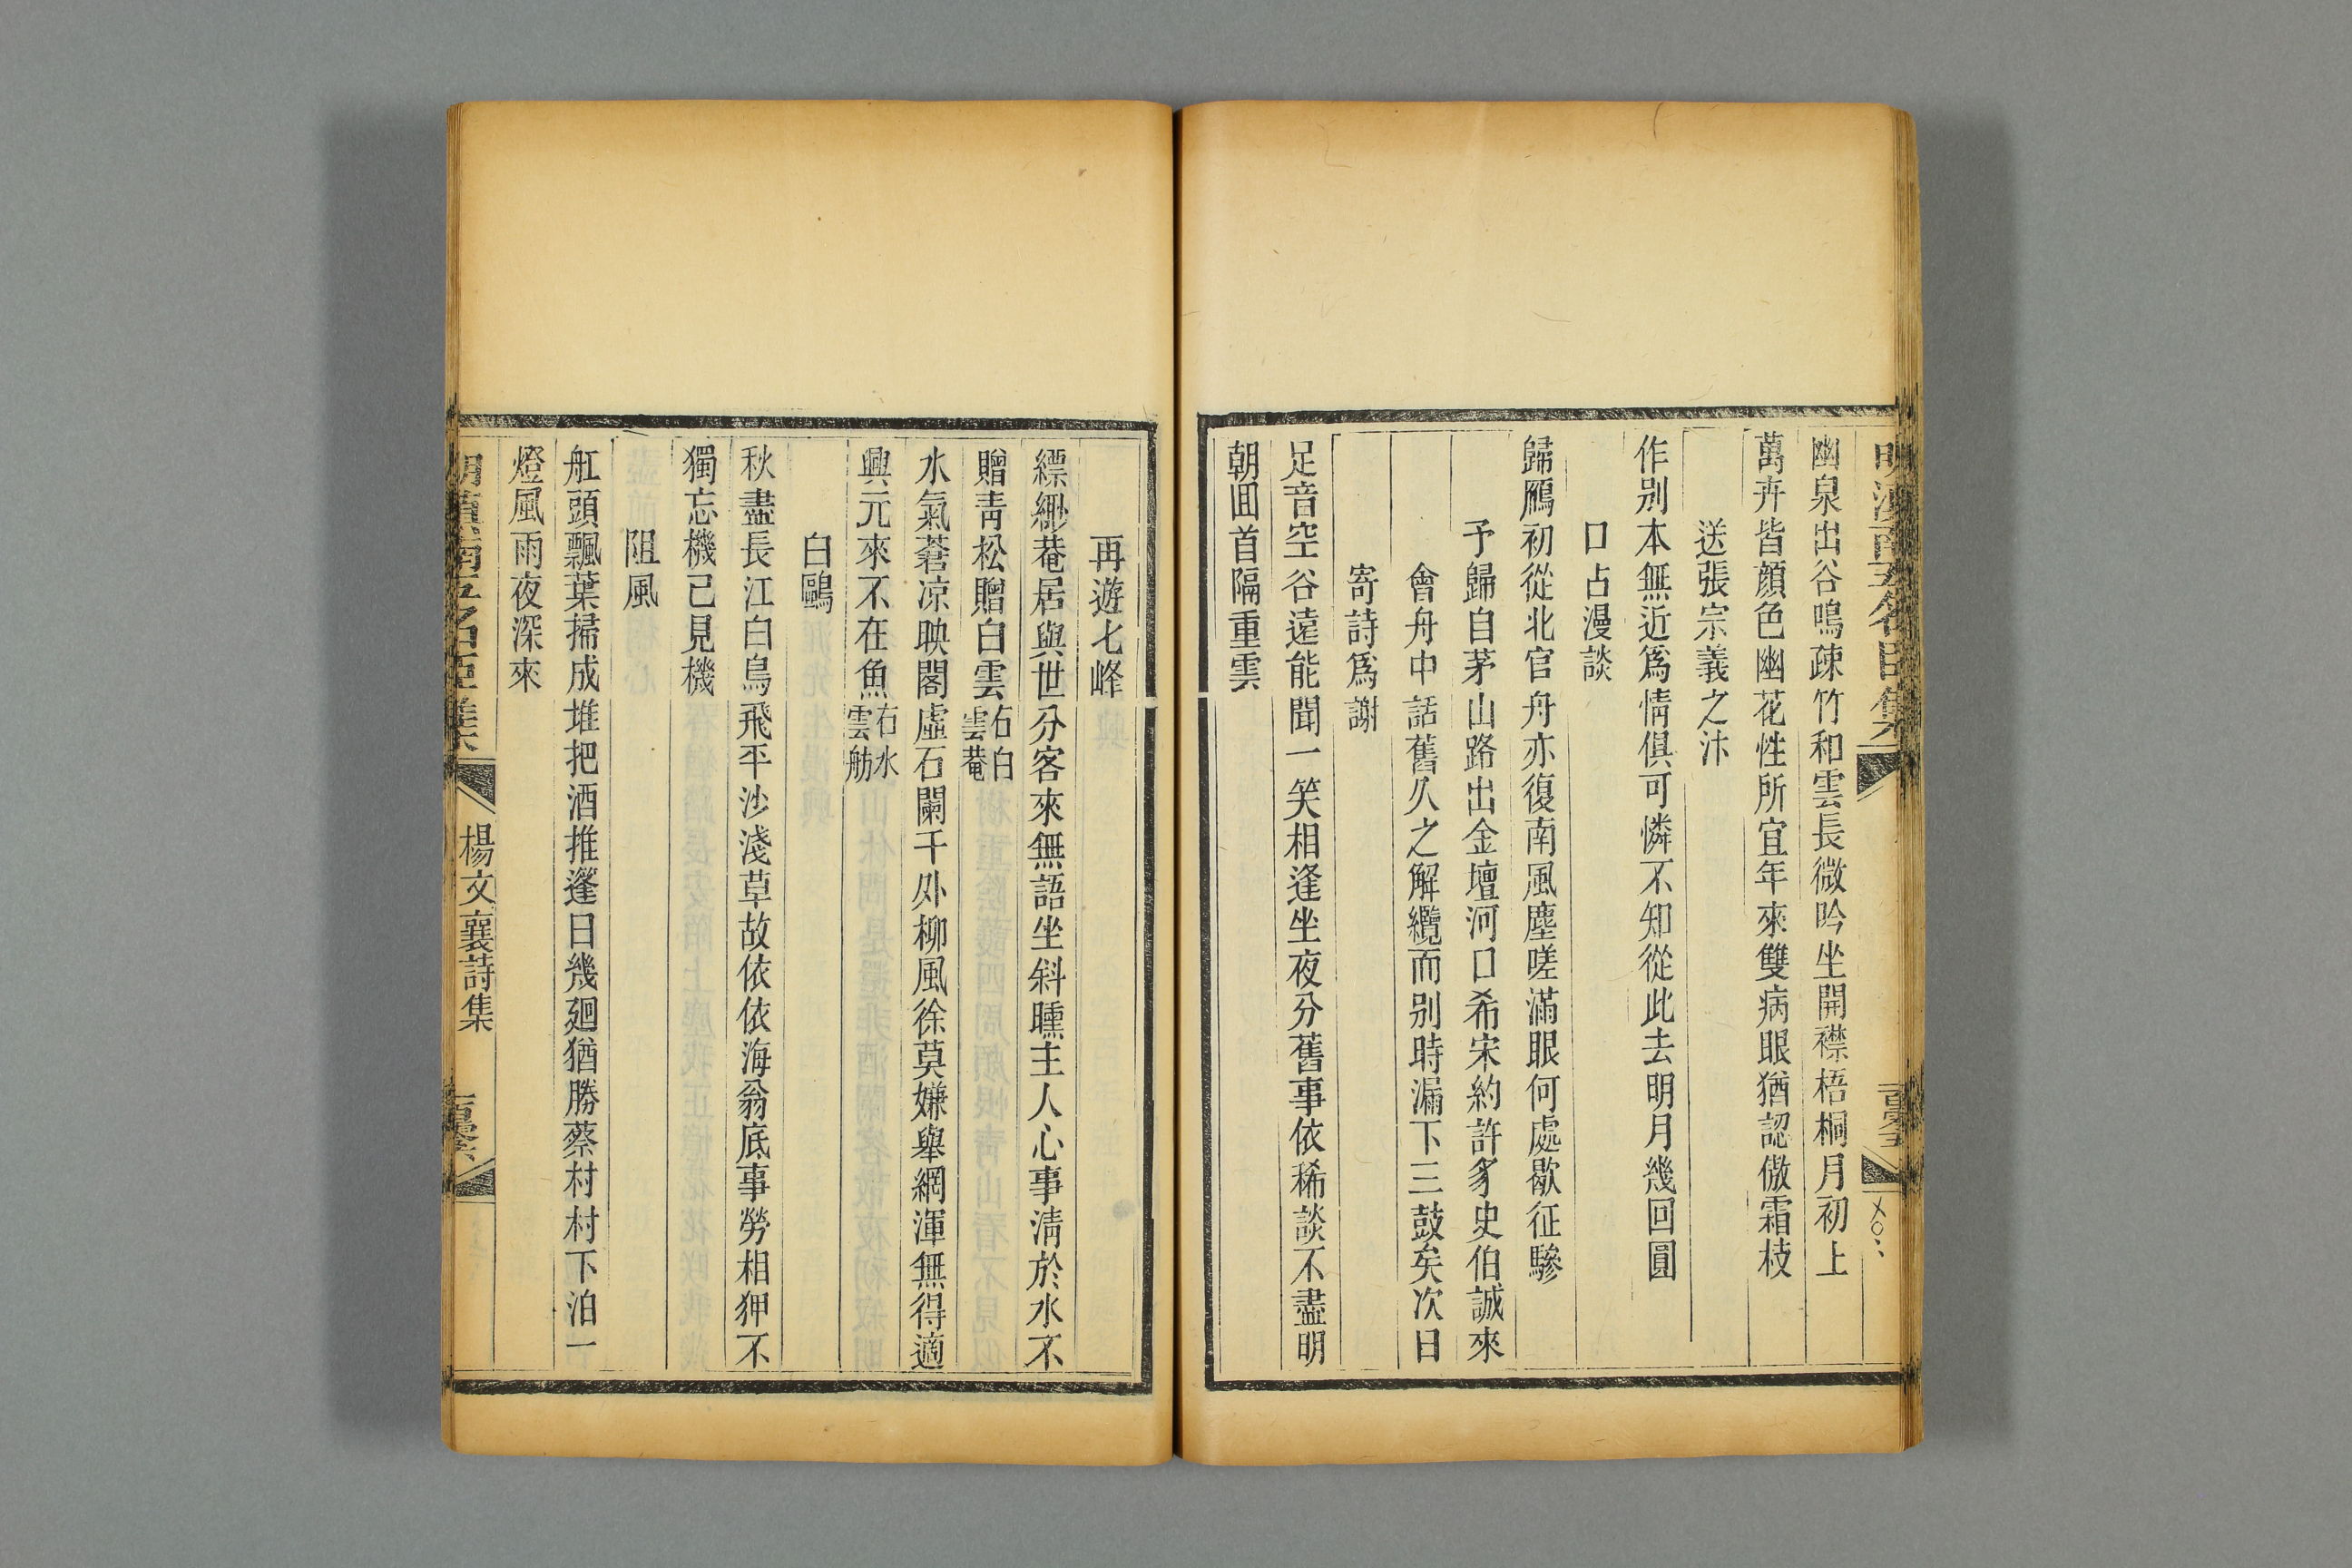 幽泉出谷鳴疎竹和雲長微吟坐開襟梧桐月初上
萬卉皆顔色幽花性所宜年來雙病眼猶認傲霜枝
送張宗義之汴
作别本無近爲情俱可憐不知從此去明月幾回圓
口占漫談
歸鴈初從北官舟亦復南風塵嗟滿眼何處歇征驂
予歸自茅山路出金壇河口希宋約許豸史伯誠來
會舟中話舊久之解纜而别時漏下三鼓矣次日
寄詩爲謝
足音空谷遠能聞一笑相逢坐夜分舊事依稀談不盡明
朝囬首隔重雲
再遊七峰
縹緲菴居與世分客來無語坐斜曛主人心事淸於水不
贈青松贈白雲右白雲菴
水氣蒼凉映閣虛石闌干外柳風徐莫嫌舉網渾無得適
興元來不在魚右水雲舫
白鷗
秋盡長江白鳥飛平沙淺草故依依海翁底事勞相狎不
獨忘機已見機
阻風
舡頭飄葉掃成堆把酒推篷日幾廻猶勝蔡村村下泊一
燈風雨夜深來
楊文襄詩集